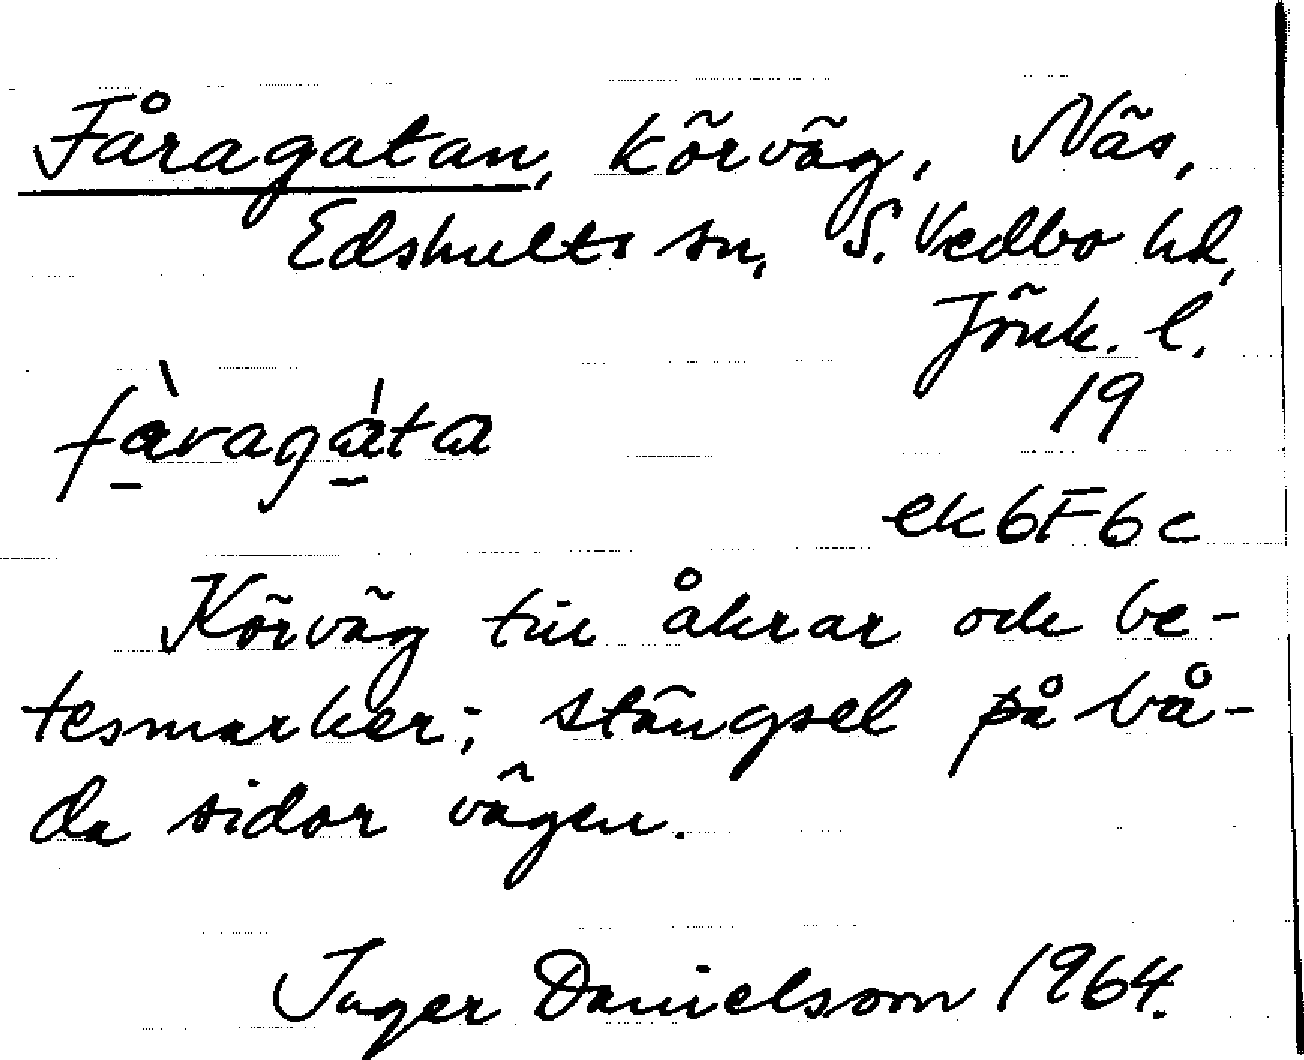 Fåragatan, körväg, Näs,
Edshults sn, S. Vedbo hd,
Jönk. l.
19
fàragáta
ek6F6c
Körväg till åkrar och be-
tesmarker; stängsel på bå-
da sidor vägen.
Inger Danielsson 1964.